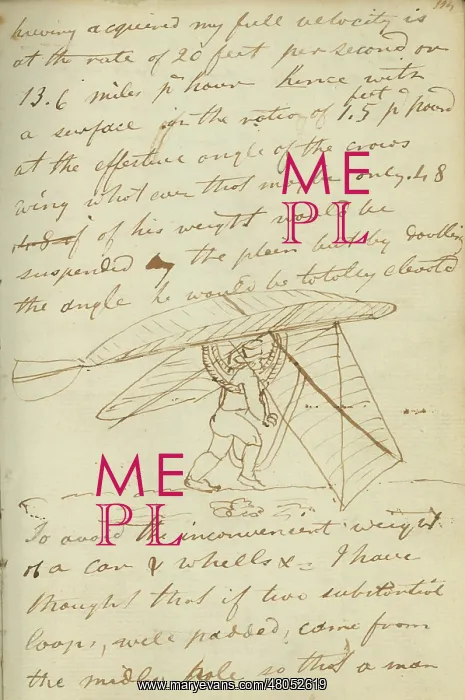 having acquired my full velocity is
at the rate of 20 feet per second or
13.6 miles pr hour hence with
a surface in the ratio of 1.5 feet pr pound
at the effective angle of the crows
wing what ever that only .48
of his weight would be
suspended the plain but by doubling
the angle he would be totolly elevated
ME
PL
ME
PL
To avoid the inconvenient weight
of a car & wheels &c I have
thought that if two substantial
loops, well padded, came from
the midle pole so that a man
www.maryevans.com/48052619